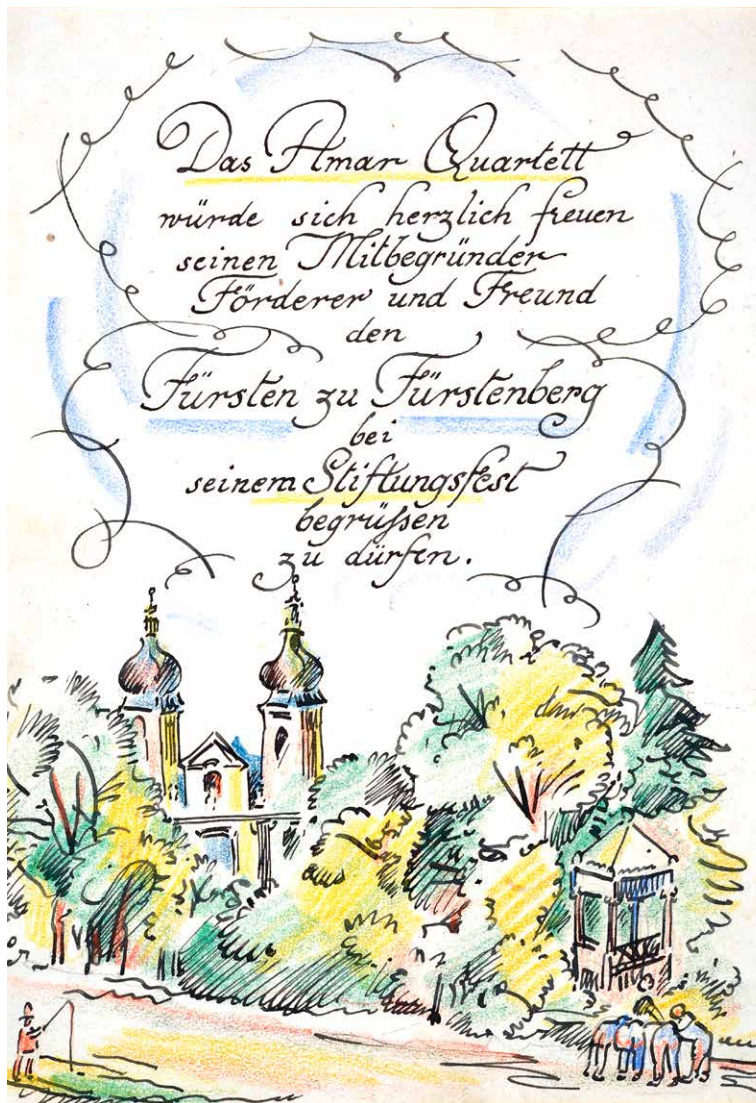 Das Amar Quartett
würde sich herzlich freuen
seinen Mitbegründer
Förderer und Freund
den
Fürsten zu Fürstenberg
bei
seinem Stiftungsfest
begrüßen
zu dürfen.